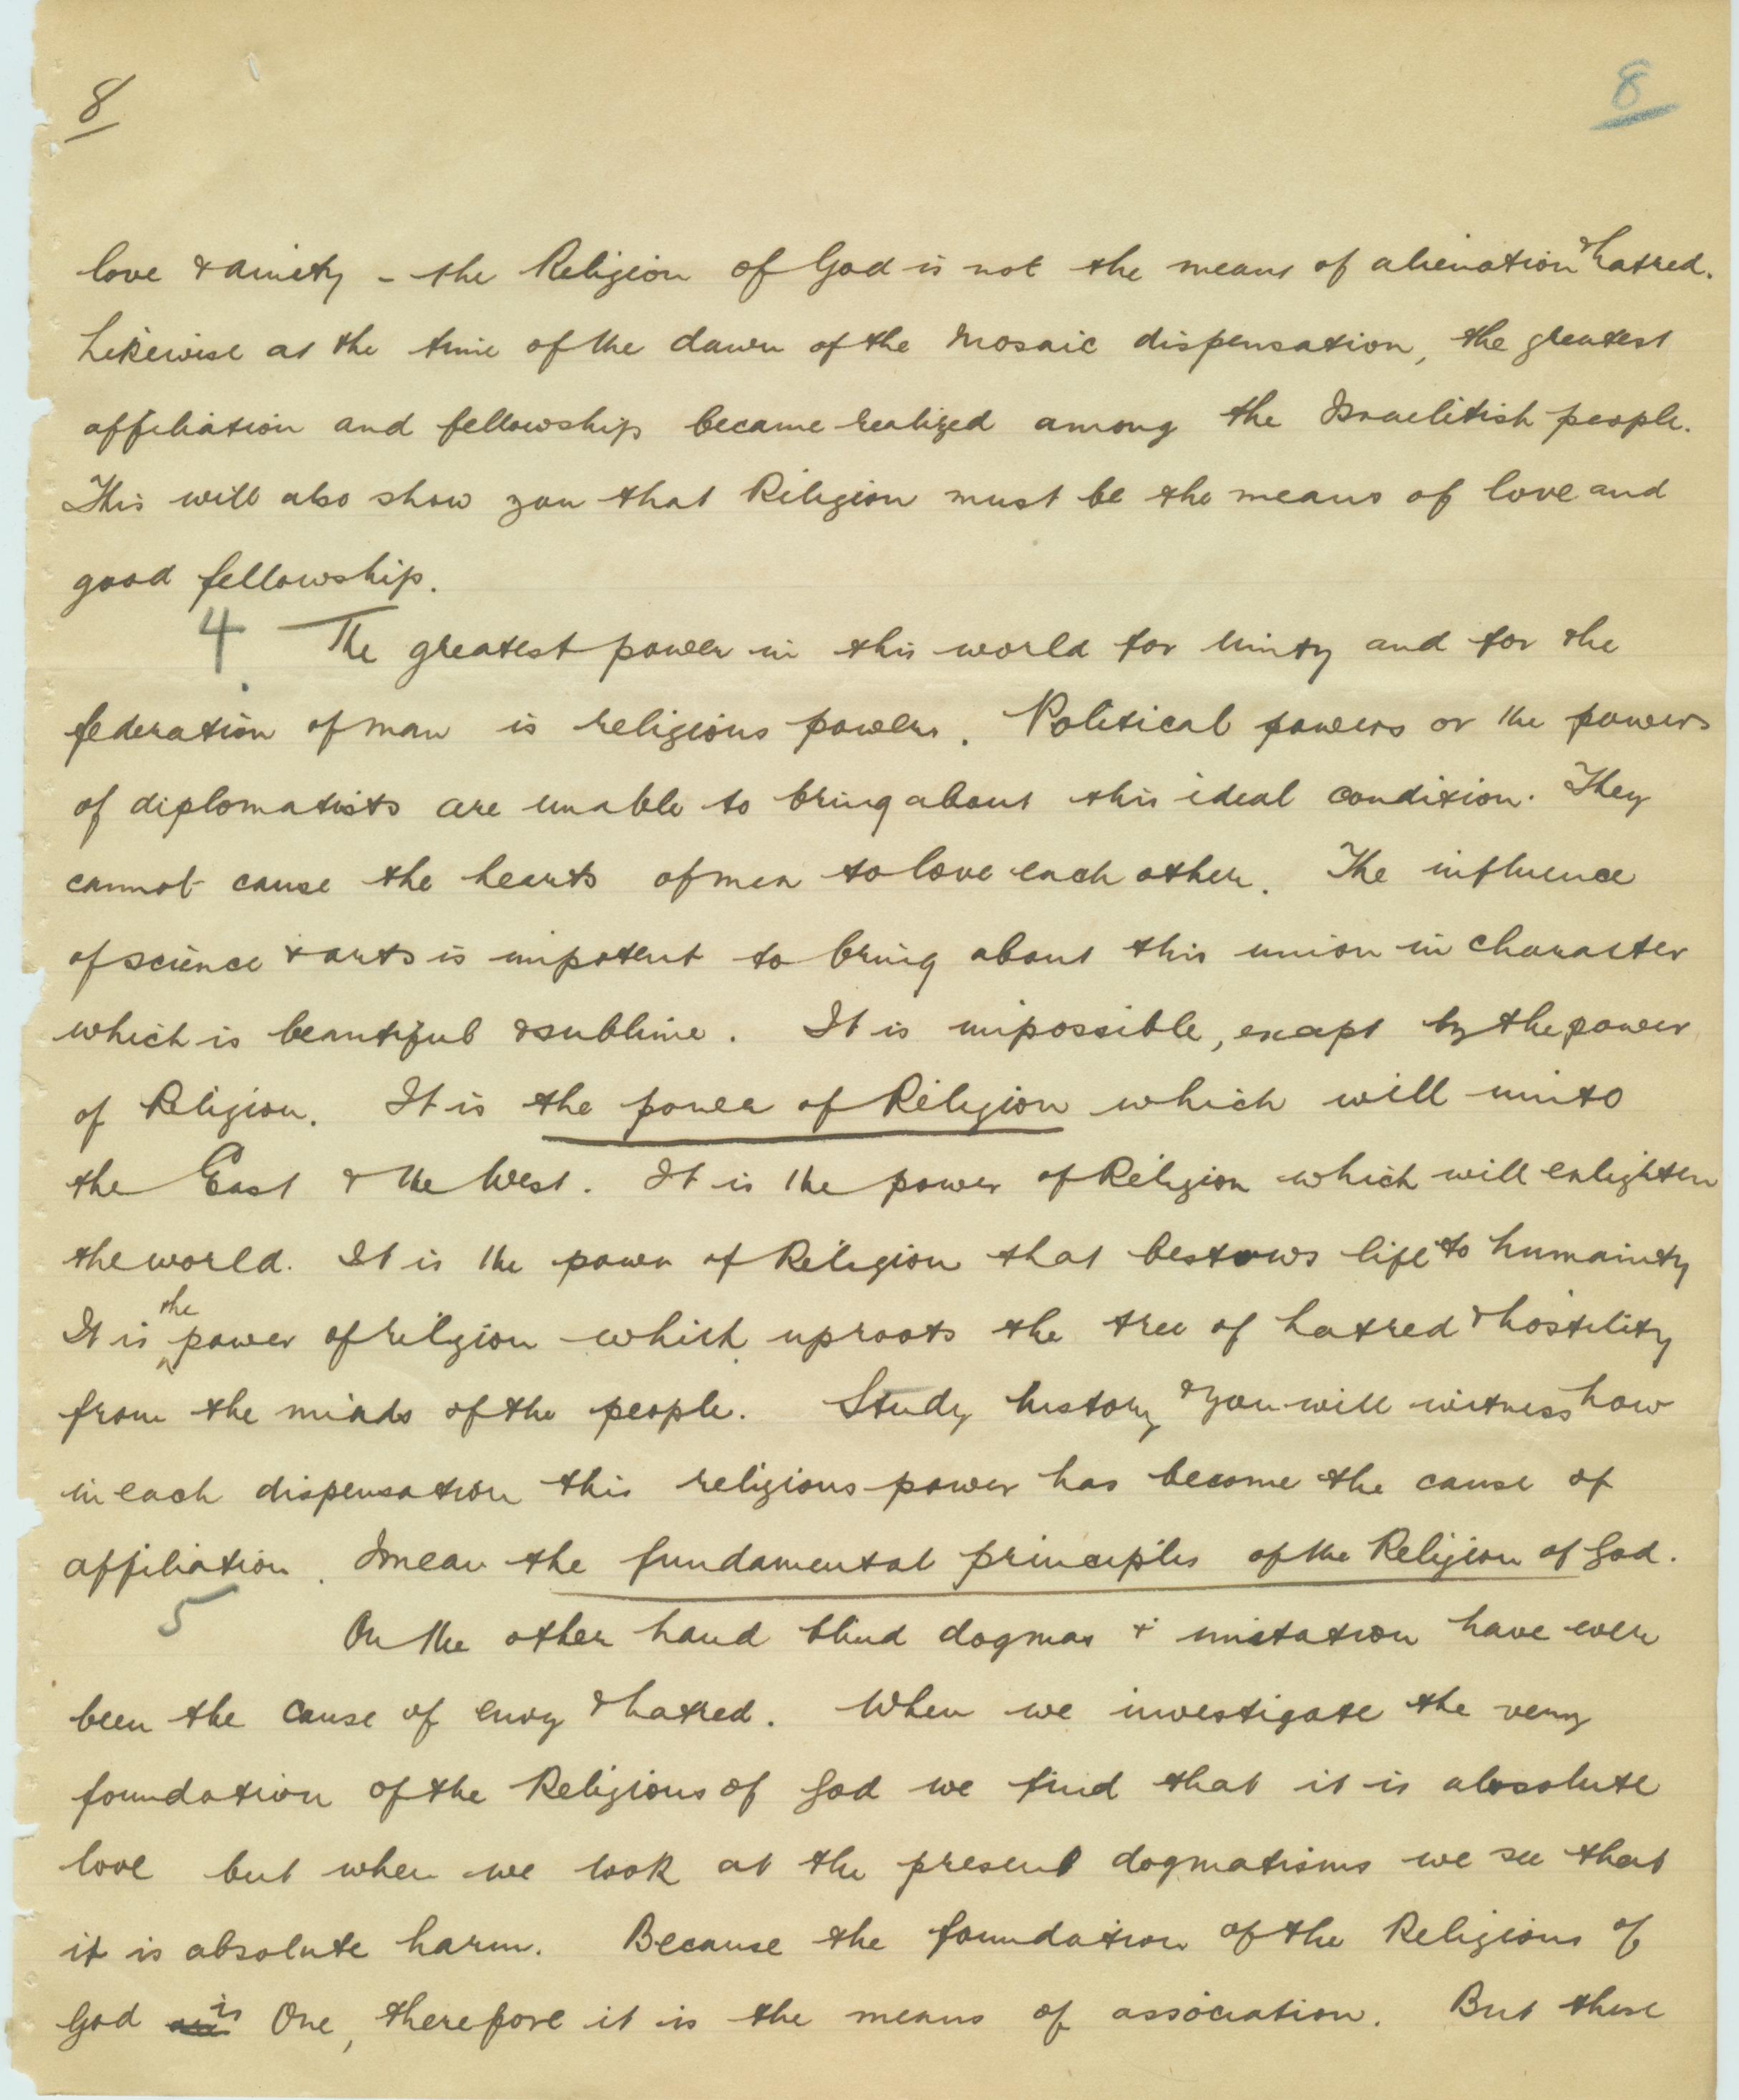 8 8
love & amity - the Religion of God is not the means of alienation & hatred.
Likewise at the time of the dawn of the Mosaic dispensation, the greatest
affiliation and fellowship became realized among the Israelitish people.
This will also show you that Religion must be the means of love and
good fellowship.
4 The greatest power in this world for Unity and for the
federation of man is religious powers. Political powers or the powers
of diplomatists are unable to bring about this ideal condition. They
cannot cause the hearts of men to love each other. The influence
of science & arts is impotent to bring about this union in character
which is beautiful & sublime. It is impossible, except by the power
of Religion. It is the power of Religion which will unite
the East & the West. It is the power of Religion which will enlighten
the world. It is the power of Religion that bestows life to humanity
It is the power of religion which uproots the tree of hatred & hostility
from the minds of the people. Study history & you will witness how
in each dispensation this religious power has become the cause of
affiliation. I mean the fundamental principles of the Religion of God.
5
On the other hand blind dogmas & imitation have ever
been the cause of envy & hatred. When we investigate the very
foundation of the Religions of God we find that it is absolute
love but when we look at the present dogmatisms we see that
it is absolute harm. Because the foundation of the Religions of
God is One, therefore it is the means of association. But these